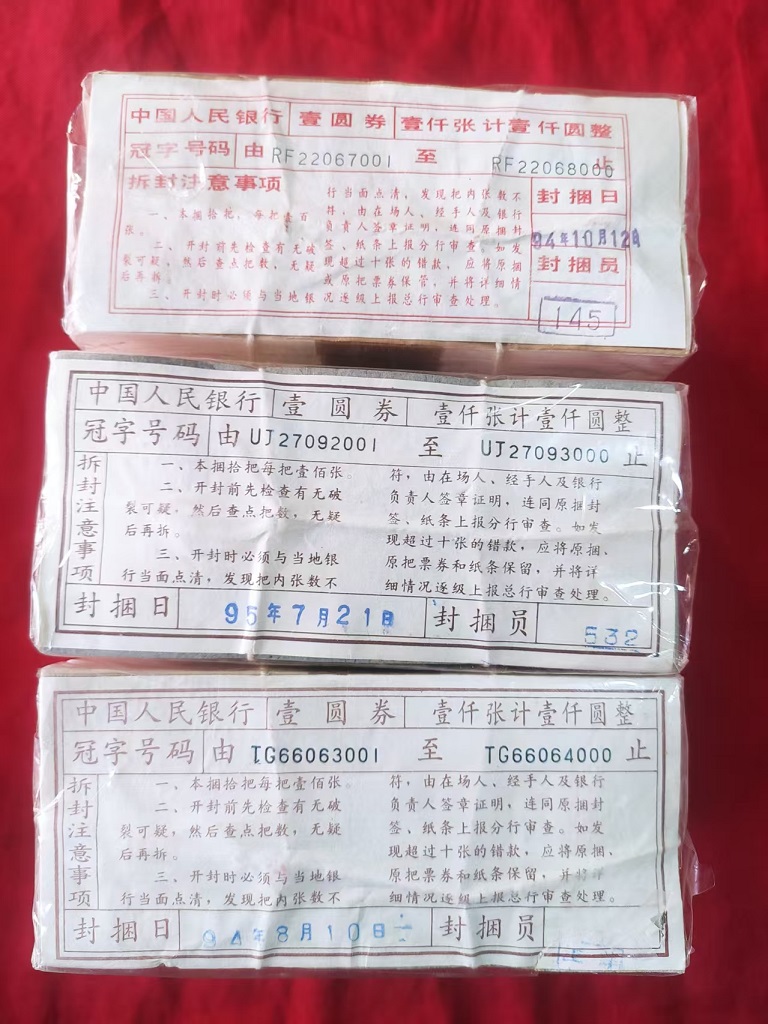 中国人民银行 壹圆券 壹仟张计壹仟圆整
冠字号码 由 RF22067001 至 RF22068000 止
拆封注意事项
一、本捆拾把,每把壹百
张。
二、开封前先检查有无破
裂可疑,然后查点把数,无疑
后再拆。
三、开封时必须与当地银
行当面点清,发现把内张数不
符,由在场人、经手人及银行
负责人签章证明,连同原捆封
签、纸条上报分行审查。如发
现超过十张的错款,应将原捆
或原把票券保管,并将详细情
况逐级上报总行审查处理。
封捆日
94年10月12日
封捆员
145
中国人民银行 壹圆券 壹仟张计壹仟圆整
冠字号码 由 UJ27092001 至 UJ27093000 止
拆封注意事项
一、本捆拾把每把壹佰张。
二、开封前先检查有无破
裂可疑,然后查点把数,无疑
后再拆。
三、开封时必须与当地银
行当面点清,发现把内张数不
符,由在场人、经手人及银行
负责人签章证明,连同原捆封
签、纸条上报分行审查。如发
现超过十张的错款,应将原捆、
原把票券和纸条保留,并将详
细情况逐级上报总行审查处理。
封捆日 95年7月21日 封捆员 532
中国人民银行 壹圆券 壹仟张计壹仟圆整
冠字号码 由 TG66063001 至 TG66064000 止
拆封注意事项
一、本捆拾把每把壹佰张。
二、开封前先检查有无破
裂可疑,然后查点把数,无疑
后再拆。
三、开封时必须与当地银
行当面点清,发现把内张数不
符,由在场人、经手人及银行
负责人签章证明,连同原捆封
签、纸条上报分行审查。如发
现超过十张的错款,应将原捆、
原把票券和纸条保留,并将详
细情况逐级上报总行审查处理。
封捆日 94年8月10日 封捆员